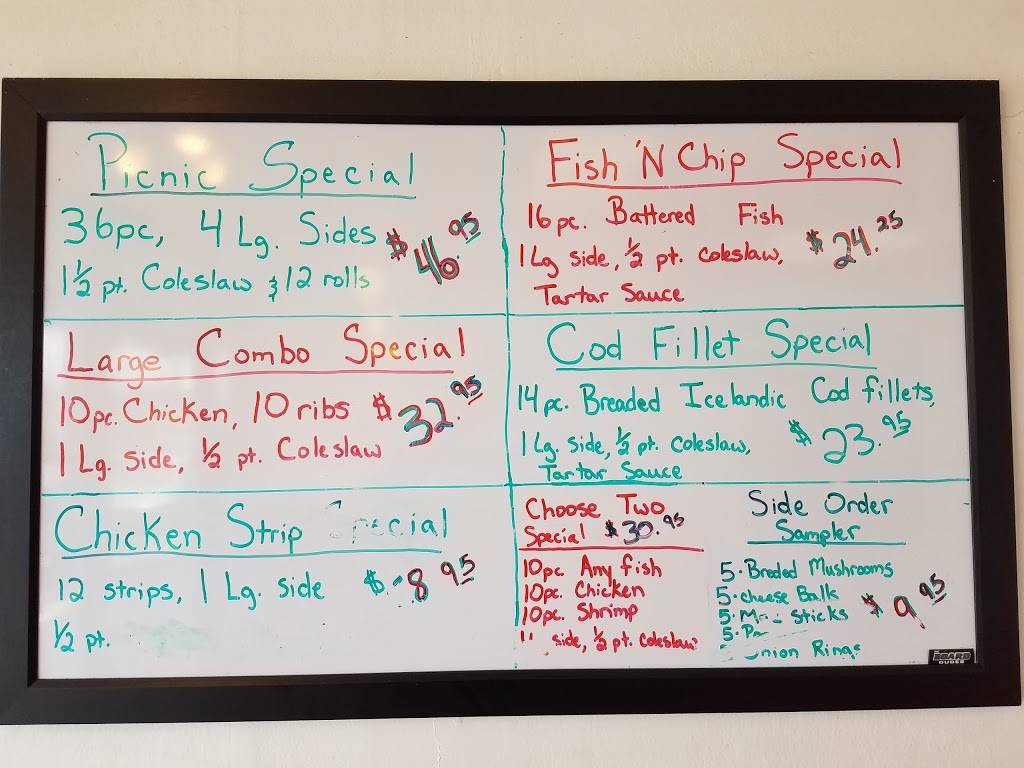 Picnic Special
36pc, 4 Lg. Sides $46.95
1 1/2 pt. Coleslaw & 12 rolls
Large Combo Special
10pc. Chicken, 10 ribs $32.95
1 Lg. side, 1/2 pt. Coleslaw
Chicken Strip Special
12 strips, 1 Lg. side
1/2 pt.
Fish 'N Chip Special
16 pc. Battered Fish $24.25
1 Lg side, 1/2 pt. coleslaw,
Tartar Sauce
Cod Fillet Special
14 pc. Breaded Icelandic Cod fillets,
1 Lg. side, 1/2 pt. coleslaw, $23.95
Tartar Sauce
Choose Two
Special $30.95
10pc. Any fish
10pc. Chicken
10pc. Shrimp
side, 1/2 pt. coleslaw
Side Order
Sampler
5. Breded Mushrooms
5. cheese Balls
5. Sticks $9.95
5.
Onion Rings
THE BOARD DUDES